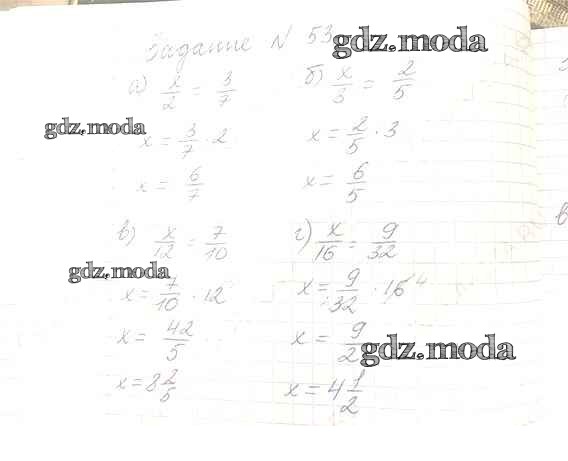 Задание N 53
gdz.moda
а) x/2 = 3/7
б) x/3 = 2/5
gdz.moda
x = 3/7 · 2
x = 2/5 · 3
x = 6/7
x = 6/5
в) x/12 = 7/10
г) x/16 = 9/32
gdz.moda
x = 7/10 · 12
x = 9/32 · 16 4
x = 42/5
x = 9/2
gdz.moda
x = 8 2/5
x = 4 1/2